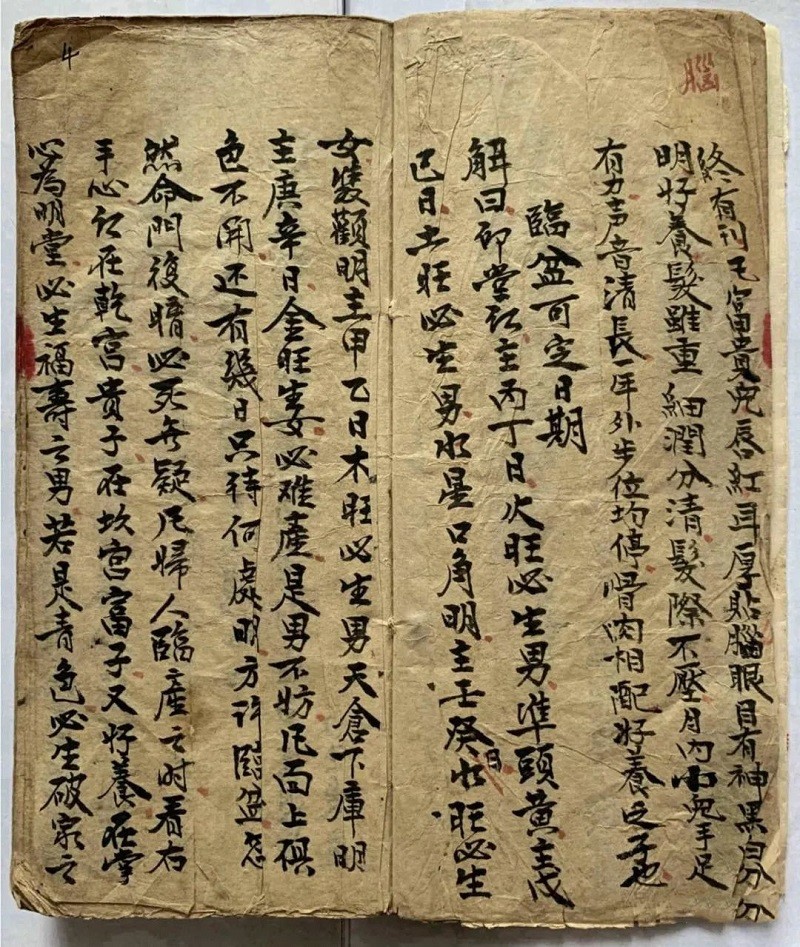 腦
終有刊毛富貴児唇紅耳厚貼腦眼目有神黑白分分
明好養髮雖重細潤分清髮際不壓月內小児手足
有力声音清長一年外步位均停骨肉相配好養之子也
臨盆可定日期
解曰印堂紅主丙丁日火旺必生男準頭黃主戊
己日土旺必生男水星口角明主壬癸日水旺必生
女裝顴明主甲乙日木旺必生男天倉下庫明
主庚辛日金旺生女必难產是男不妨凡面上俱
色不開还有幾日只待何處明方許臨盆忽
然命門復暗必死無疑凡婦人臨產之时看右
手心紅在乾宮貴子在坎宮富子又好養在掌
心為明堂必生福壽之男若是青色必生破家之
4